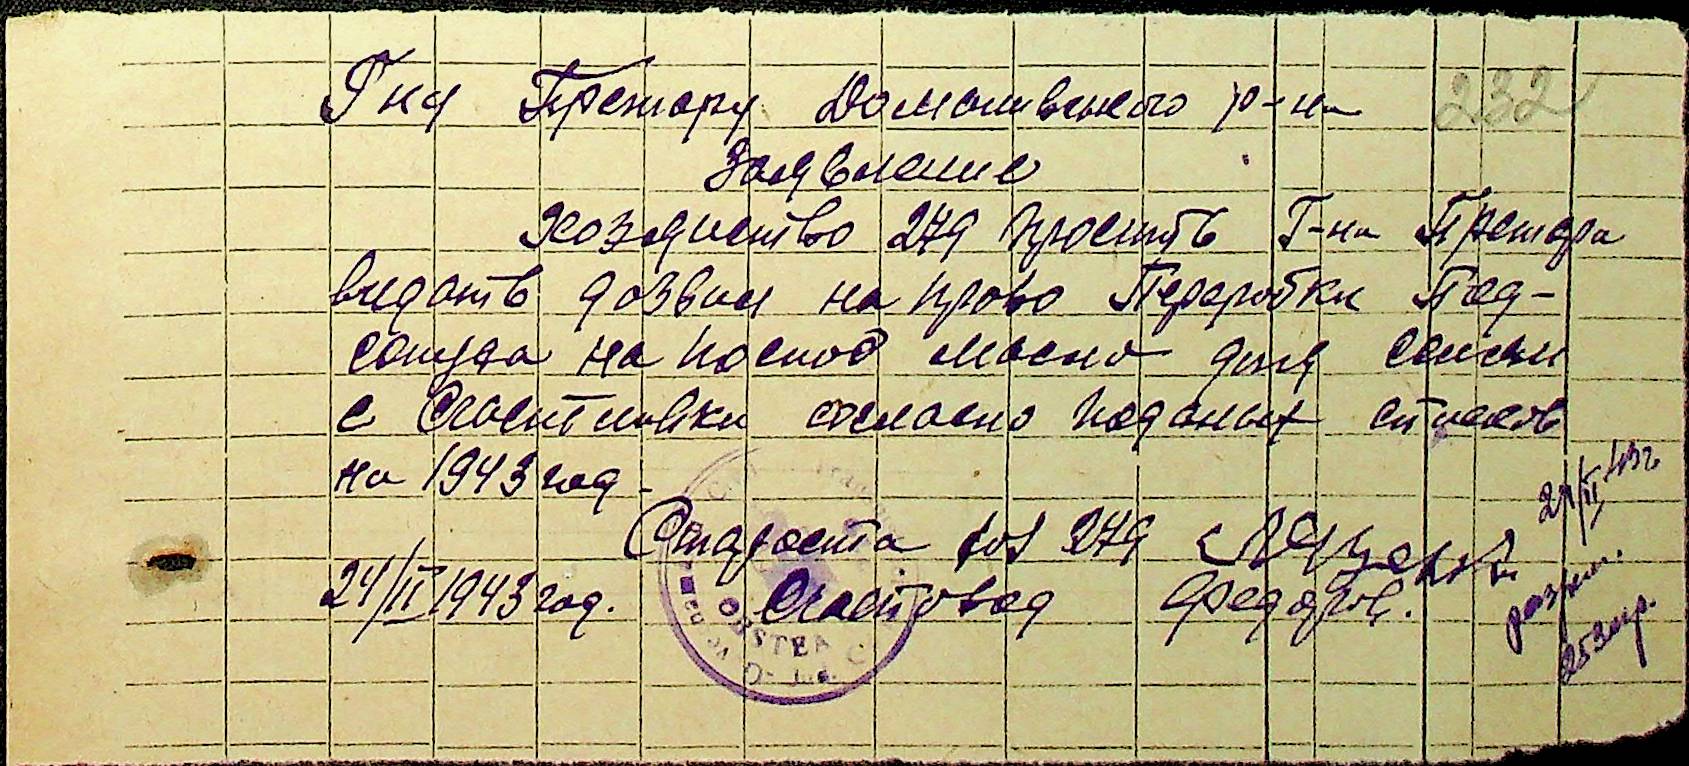 Г-ну Претору Доманивського р-на
232
Заявление
Хозяиство 279 просить Г-на Претора
видать дозвил на право Переробки Под-
солнуха на постоє масло для семьи
с Счастливки согласно поданых списков
на 1943 год.
Староста хоз 279
24/II 1943 год. Счетовод Федоров.
24/II 43г
разреш.
253
OBSTEA